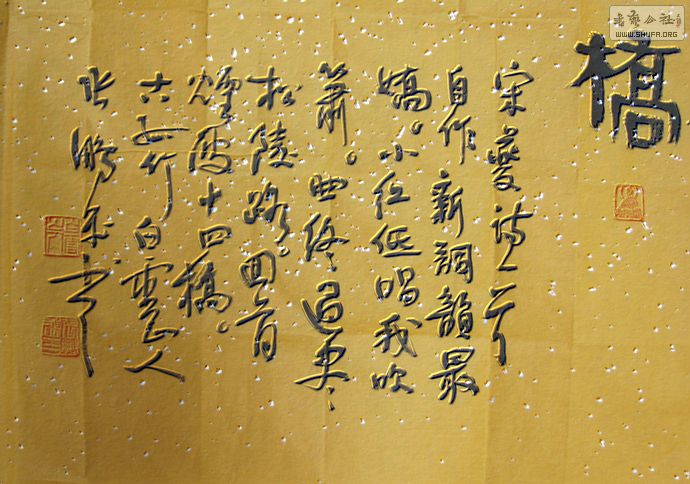 橋
宋夔詩一首
自作新詞韻最
嬌。小紅低唱我吹
簫。曲終過盡
松陵路。回首
煙波十四橋。
白雲山人
书艺公社
WWW.SHUFA.ORG